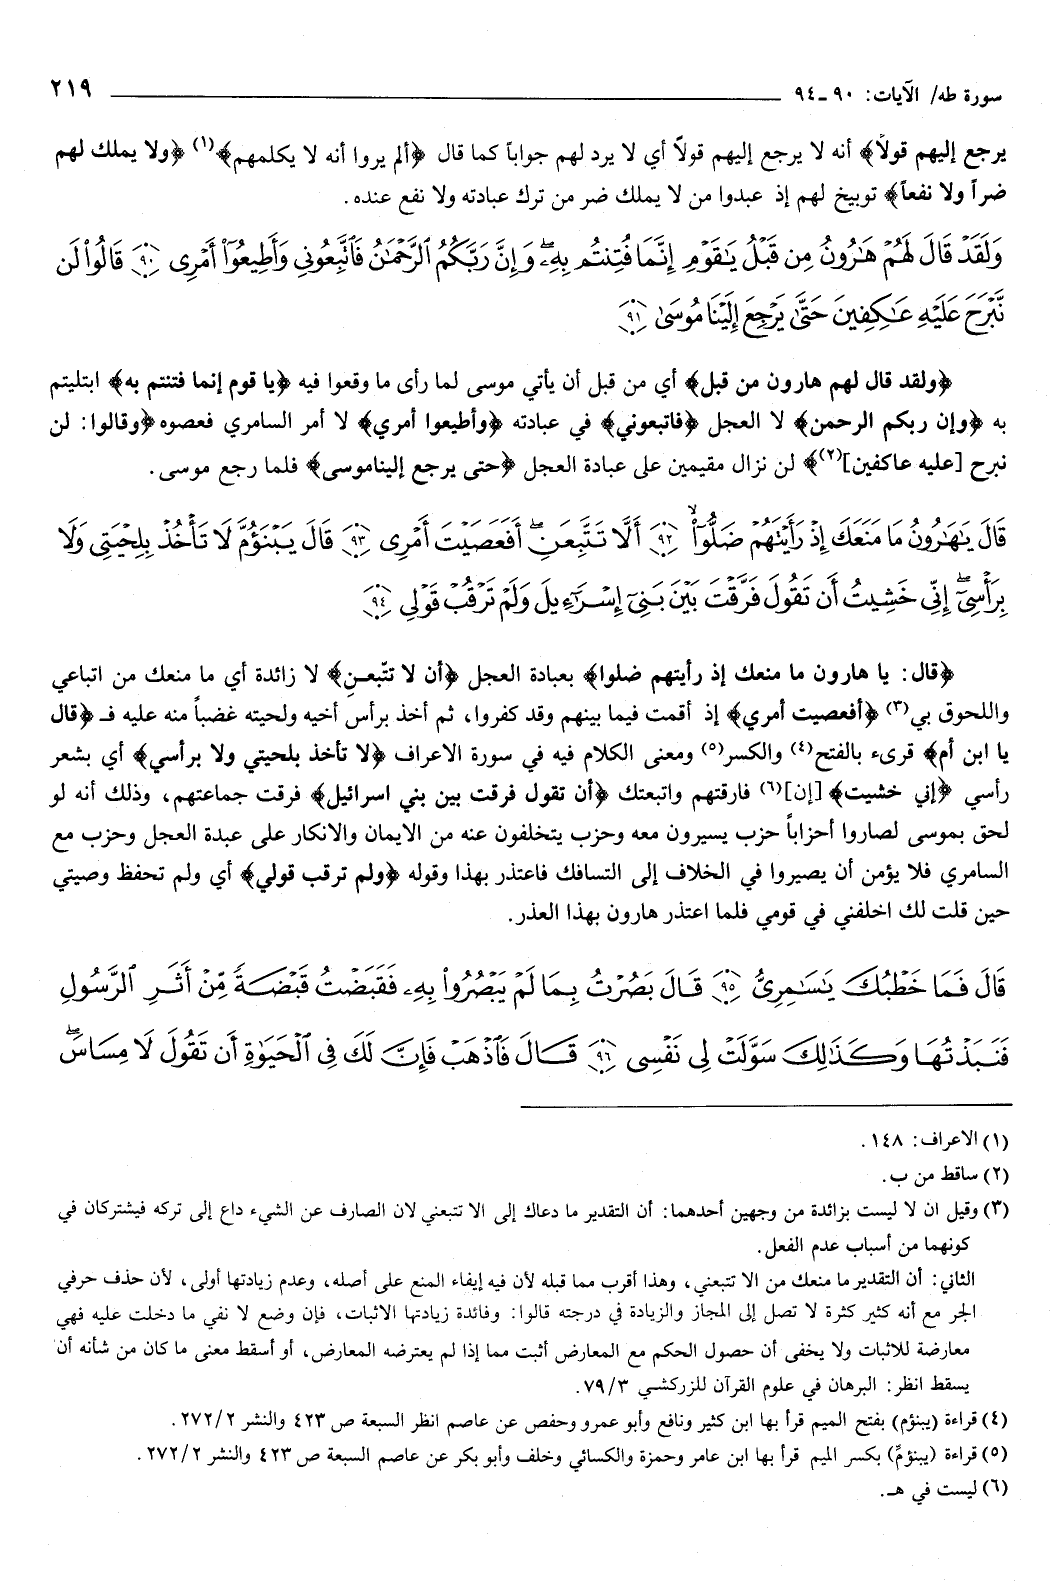 سورة طه/ الآيات: ٩٠ـ٩٤ ٢١٩
يرجع إليهم قولاً﴾ أنه لا يرجع إليهم قولاً أي لا يرد لهم جواباً كما قال ﴿ألم يروا أنه لا يكلمهم﴾(١) ﴿ولا يملك لهم
ضراً ولا نفعاً﴾ توبيخ لهم إذ عبدوا من لا يملك ضر من ترك عبادته ولا نفع عنده.
وَلَقَدْ قَالَ لَهُمْ هَٰرُونُ مِن قَبْلُ يَٰقَوْمِ إِنَّمَا فُتِنتُم بِهِۦۖ وَإِنَّ رَبَّكُمُ ٱلرَّحْمَٰنُ فَٱتَّبِعُونِى وَأَطِيعُوٓا۟ أَمْرِى ٩٠ قَالُوا۟ لَن
نَّبْرَحَ عَلَيْهِ عَٰكِفِينَ حَتَّىٰ يَرْجِعَ إِلَيْنَا مُوسَىٰ ٩١
﴿ولقد قال لهم هارون من قبل﴾ أي من قبل أن يأتي موسى لما رأى ما وقعوا فيه ﴿يا قوم إنما فتنتم به﴾ ابتليتم
به ﴿وإن ربكم الرحمن﴾ لا العجل ﴿فاتبعوني﴾ في عبادته ﴿وأطيعوا أمري﴾ لا أمر السامري فعصوه﴿وقالوا: لن
نبرح [عليه عاكفين](٢)﴾ لن نزال مقيمين على عبادة العجل ﴿حتى يرجع إليناموسى﴾ فلما رجع موسى.
قَالَ يَٰهَٰرُونُ مَا مَنَعَكَ إِذْ رَأَيْتَهُمْ ضَلُّوٓا۟ ٩٢ أَلَّا تَتَّبِعَنِۖ أَفَعَصَيْتَ أَمْرِى ٩٣ قَالَ يَبْنَؤُمَّ لَا تَأْخُذْ بِلِحْيَتِى وَلَا
بِرَأْسِىٓۖ إِنِّى خَشِيتُ أَن تَقُولَ فَرَّقْتَ بَيْنَ بَنِىٓ إِسْرَٰٓءِيلَ وَلَمْ تَرْقُبْ قَوْلِى ٩٤
﴿قال: يا هارون ما منعك إذ رأيتهم ضلوا﴾ بعبادة العجل ﴿أن لا تتّبعنِ﴾ لا زائدة أي ما منعك من اتباعي
واللحوق بي(٣) ﴿أفعصيت أمري﴾ إذ أقمت فيما بينهم وقد كفروا، ثم أخذ برأس أخيه ولحيته غضباً منه عليه فـ ﴿قال
يا ابن أم﴾ قرىء بالفتح(٤) والكسر(٥) ومعنى الكلام فيه في سورة الاعراف ﴿لا تأخذ بلحيتي ولا برأسي﴾ أي بشعر
رأسي ﴿إني خشيت﴾ [إن](٦) فارقتهم واتبعتك ﴿أن تقول فرقت بين بني اسرائيل﴾ فرقت جماعتهم، وذلك أنه لو
لحق بموسى لصاروا أحزاباً حزب يسيرون معه وحزب يتخلفون عنه من الايمان والانكار على عبدة العجل وحزب مع
السامري فلا يؤمن أن يصيروا في الخلاف إلى التسافك فاعتذر بهذا وقوله ﴿ولم ترقب قولي﴾ أي ولم تحفظ وصيتي
حين قلت لك اخلفني في قومي فلما اعتذر هارون بهذا العذر.
قَالَ فَمَا خَطْبُكَ يَٰسَٰمِرِىُّ ٩٥ قَالَ بَصُرْتُ بِمَا لَمْ يَبْصُرُوا۟ بِهِۦ فَقَبَضْتُ قَبْضَةً مِّنْ أَثَرِ ٱلرَّسُولِ
فَنَبَذْتُهَا وَكَذَٰلِكَ سَوَّلَتْ لِى نَفْسِى ٩٦ قَالَ فَٱذْهَبْ فَإِنَّ لَكَ فِى ٱلْحَيَوٰةِ أَن تَقُولَ لَا مِسَاسَۖ
(١) الاعراف: ١٤٨.
(٢) ساقط من ب.
(٣) وقيل ان لا ليست بزائدة من وجهين أحدهما: أن التقدير ما دعاك إلى الا تتبعني لان الصارف عن الشيء داع إلى تركه فيشتركان في
كونهما من أسباب عدم الفعل.
الثاني: أن التقدير ما منعك من الا تتبعني، وهذا أقرب مما قبله لأن فيه إيفاء المنع على أصله، وعدم زيادتها أولى، لأن حذف حرفي
الجر مع أنه كثير كثرة لا تصل إلى المجاز والزيادة في درجته قالوا: وفائدة زيادتها الاثبات، فإن وضع لا نفي ما دخلت عليه فهي
معارضة للاثبات ولا يخفى أن حصول الحكم مع المعارض أثبت مما إذا لم يعترضه المعارض، أو أسقط معنى ما كان من شأنه أن
يسقط انظر: البرهان في علوم القرآن للزركشي ٧٩/٣.
(٤) قراءة (يبنؤم) بفتح الميم قرأ بها ابن كثير ونافع وأبو عمرو وحفص عن عاصم انظر السبعة ص ٤٢٣ والنشر ٢٧٢/٢.
(٥) قراءة (يبنؤمِّ) بكسر الميم قرأ بها ابن عامر وحمزة والكسائي وخلف وأبو بكر عن عاصم السبعة ص ٤٢٣ والنشر ٢٧٢/٢.
(٦) ليست في هـ.